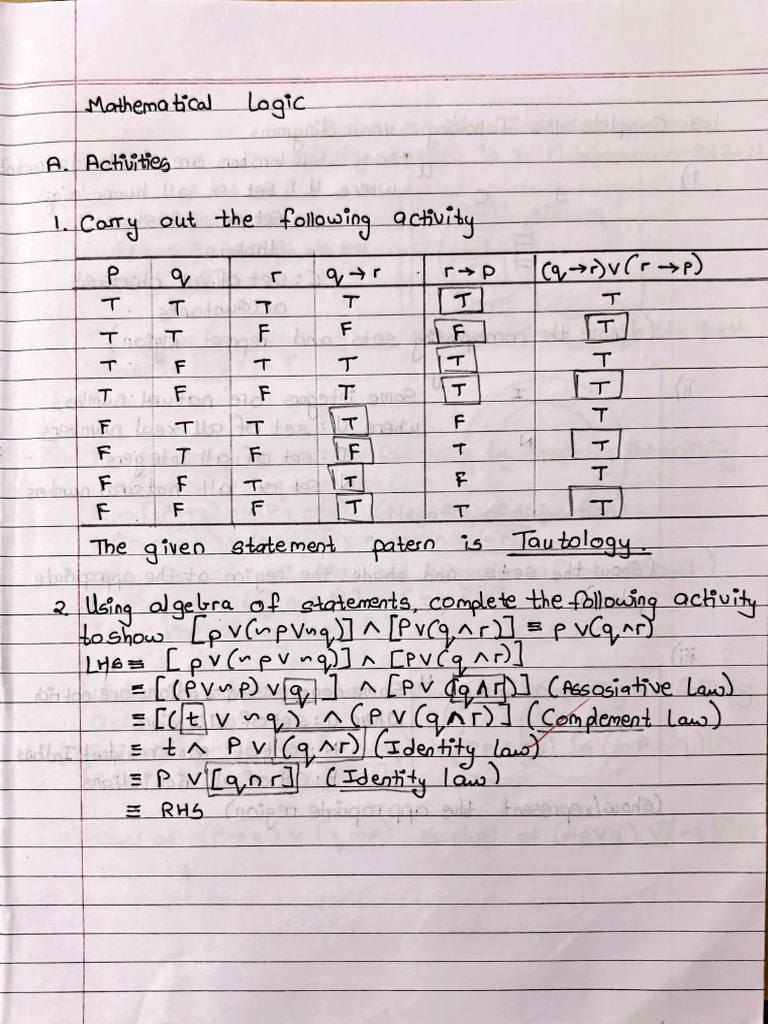 Mathematical Logic
A. Activities
1. Carry out the following activity
P q r q → r r → p (q → r) ∨ (r → p)
T T T T T T
T T F F F T
T F T T T T
T F F T T T
F T T T F T
F T F F T T
F F T T F T
F F F T T T
The given statement patern is Tautology.
2. Using algebra of statements, complete the following activity
to show [p ∨ (~p ∨ ~q)] ∧ [P ∨ (q ∧ r)] ≡ p ∨ (q ∧ r)
LHS ≡ [p ∨ (~p ∨ ~q)] ∧ [P ∨ (q ∧ r)]
≡ [(P ∨ ~P) ∨ q] ∧ [P ∨ (q ∧ r)] (Assosiative Law)
≡ [(t ∨ ~q) ∧ (P ∨ (q ∧ r)] (Complement Law)
≡ t ∧ P ∨ (q ∧ r) (Identity law)
≡ P ∨ [q ∩ r] (Identity law)
≡ RHS